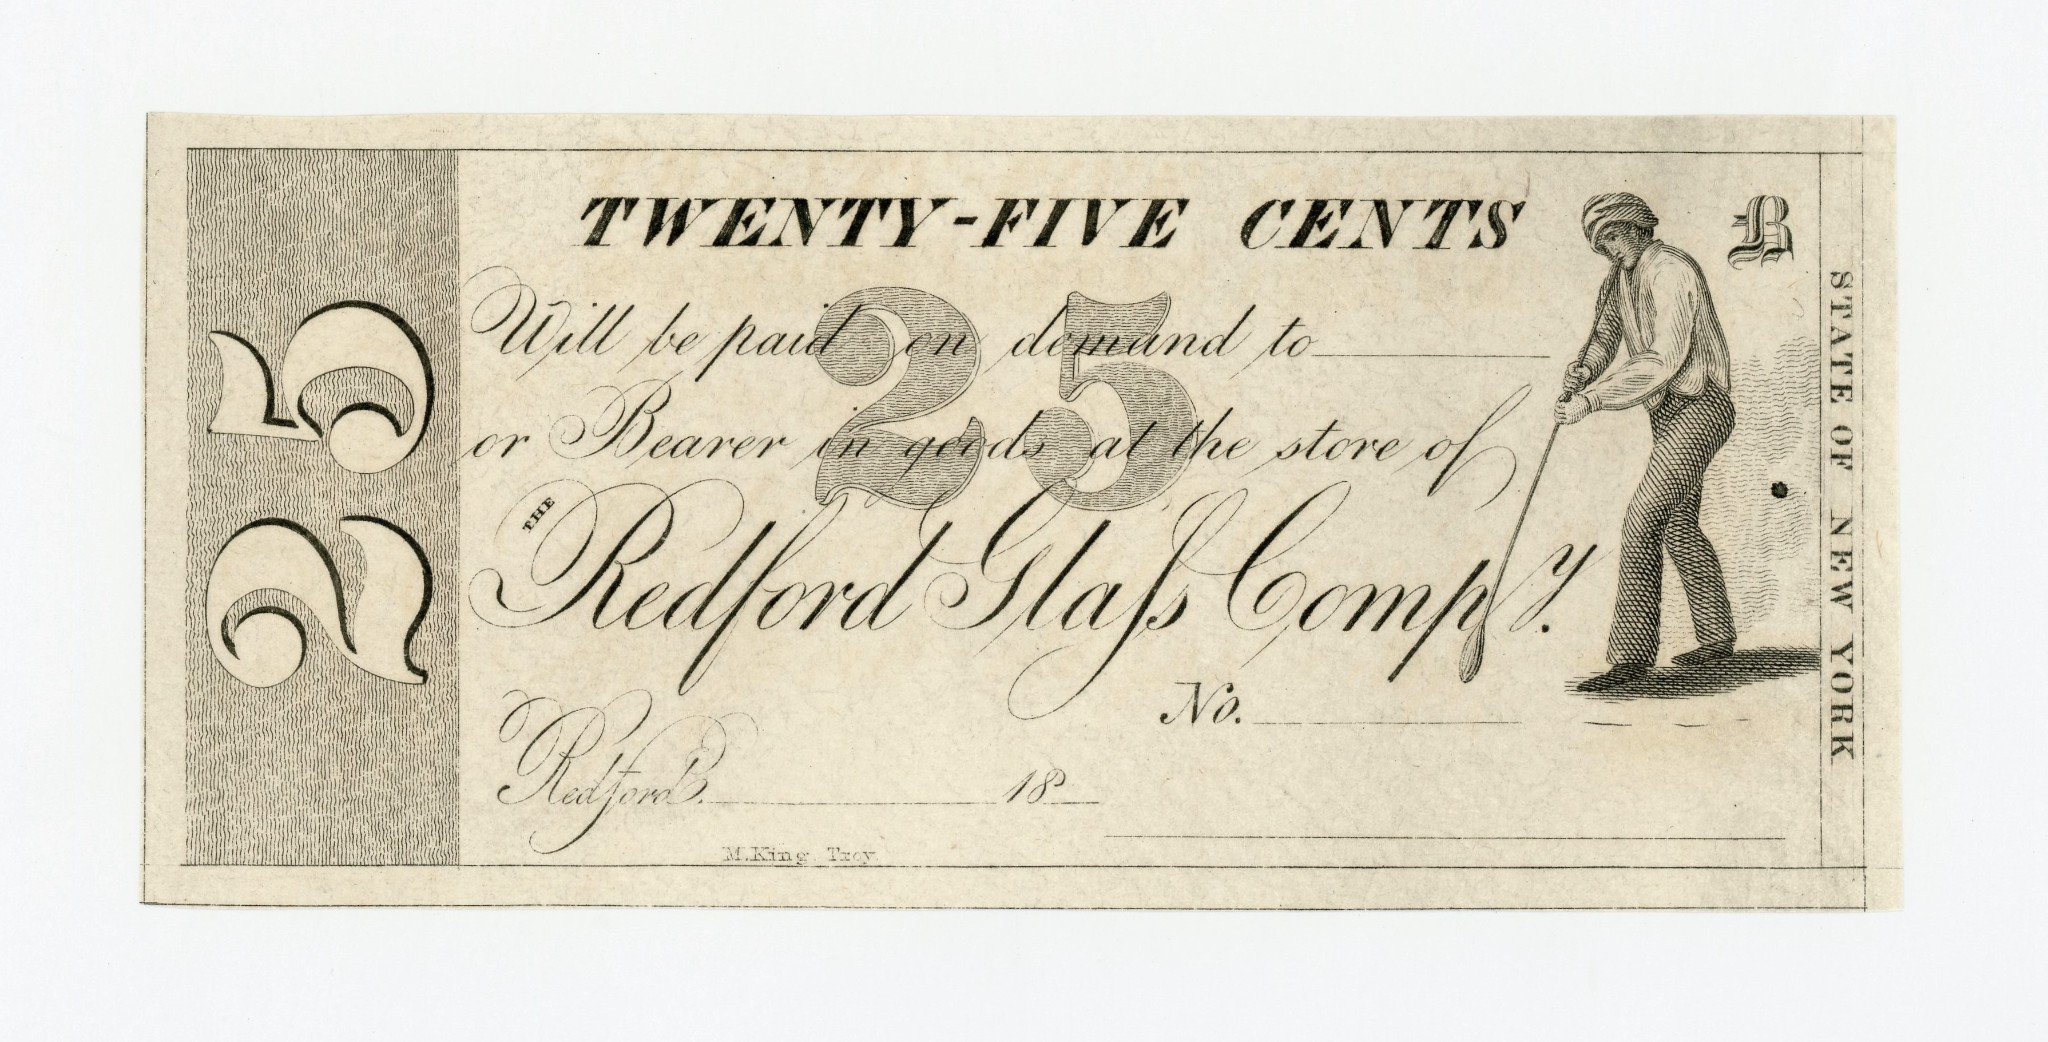 25
TWENTY-FIVE CENTS
B
25
Will be paid on demand to
or Bearer in goods at the store of
THE Redford Glaſs Compy.
No.
Redford. 18
M.King Troy
STATE OF NEW YORK